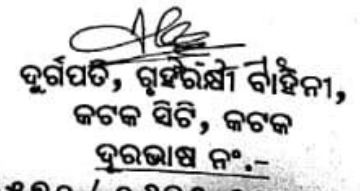 ଦୁର୍ଗପତି, ଗୃହରକ୍ଷୀ ବାହିନୀ,
କଟକ ସିଟି, କଟକ
ଦୂରଭାଷ ନଂ.-